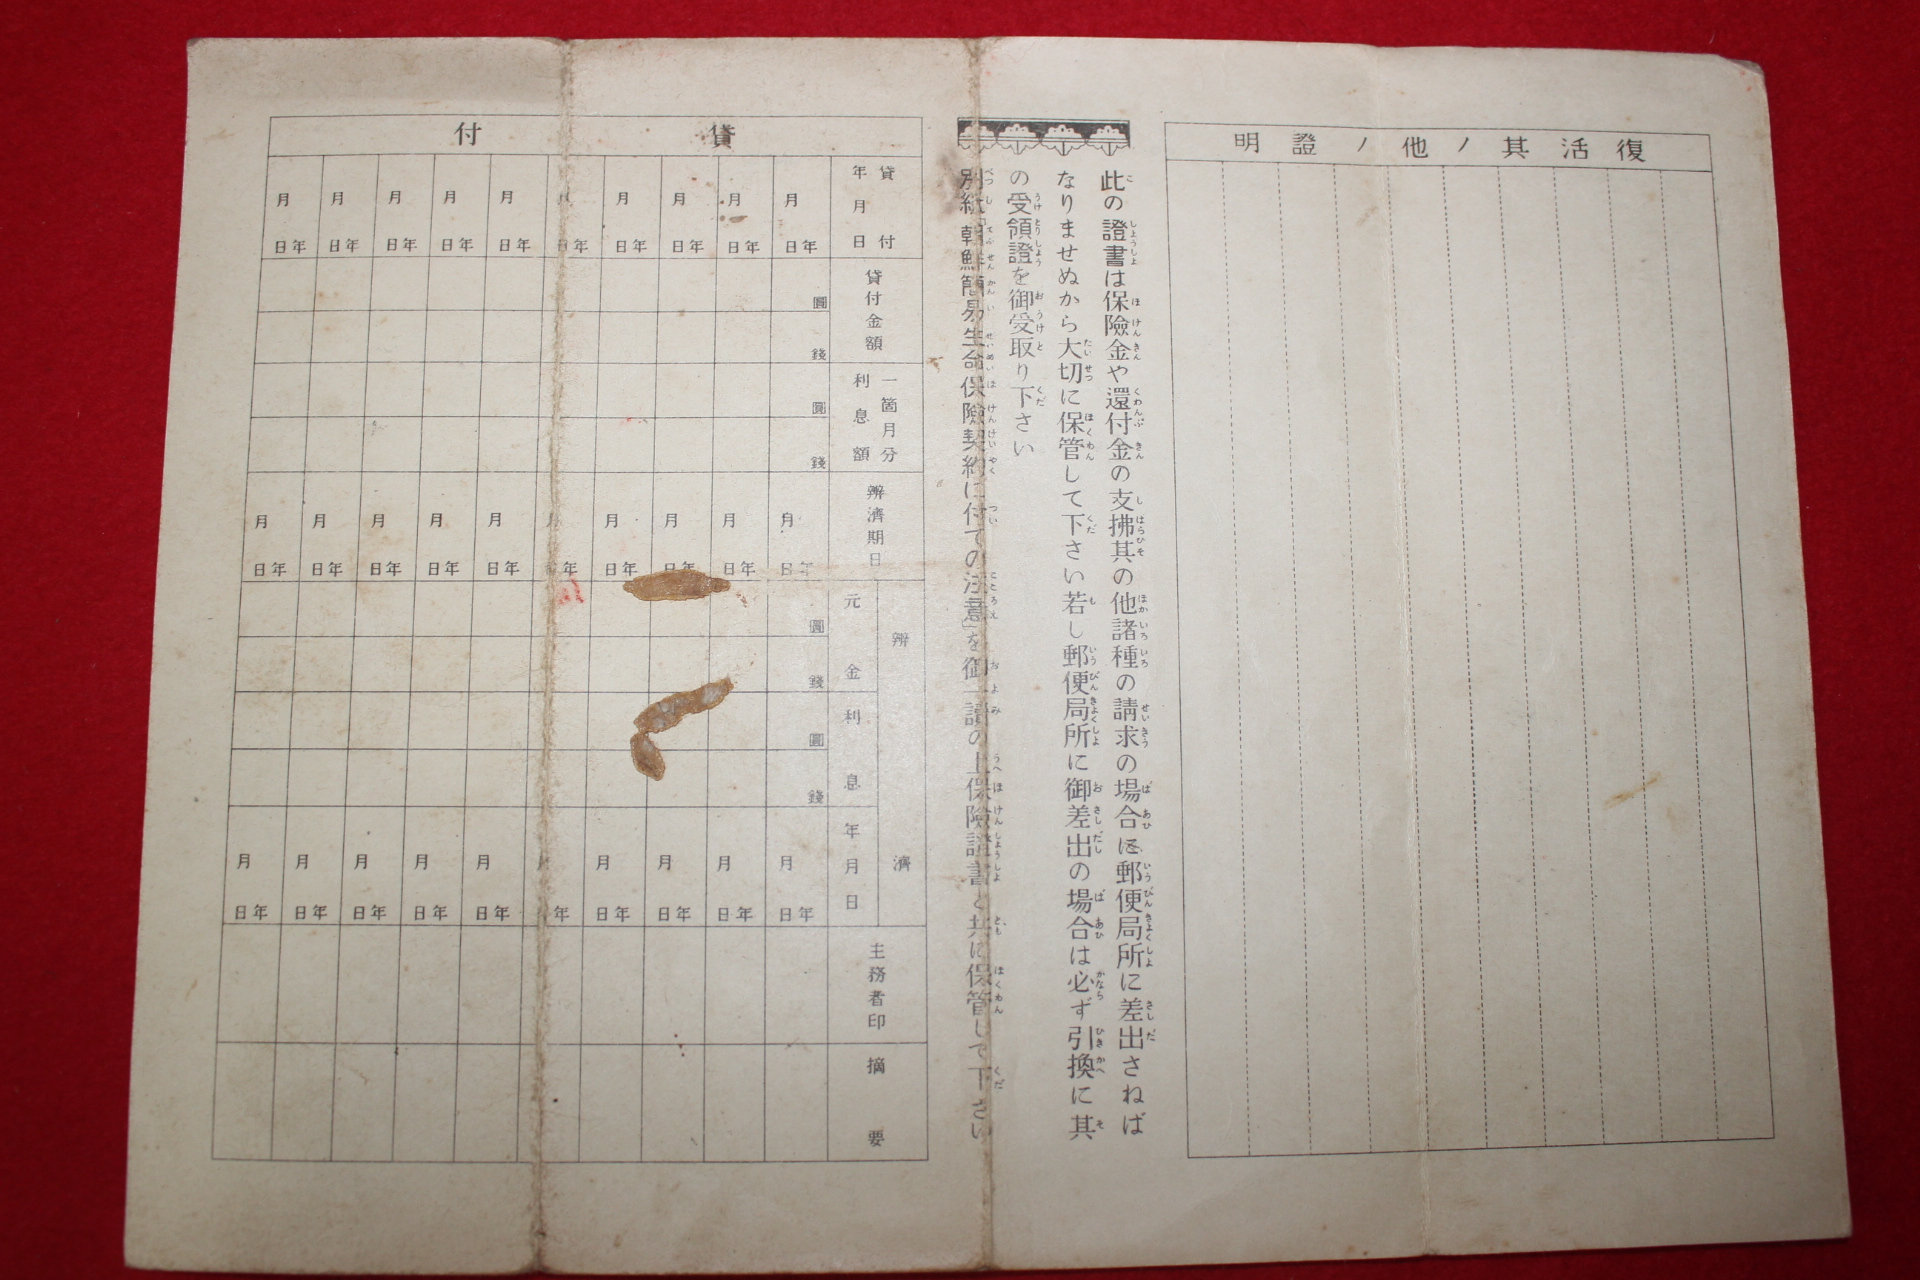 復活其ノ他ノ證明
此の證書は保險金や還付金の支拂其の他諸種の請求の場合に郵便局所に差出さねば
なりませぬから大切に保管して下さい若し郵便局所に御差出の場合は必ず引換に其
の受領證を御受取り下さい
別紙「朝鮮簡易生命保險契約に付ての注意」を御一讀の上保險證書と共に保管して下さい
貸付
貸付
年月日
年月日 年月日 年月日 年月日 年月日 年月日 年月日 年月日 年月日 年月日
貸付金額
圓
錢
一箇月分
利息額
圓
錢
辨濟期日
年月日 年月日 年月日 年月日 年月日 年月日 年月日 年月日 年月日 年月日
辨濟
元金
圓
錢
利息
圓
錢
年月日
年月日 年月日 年月日 年月日 年月日 年月日 年月日 年月日 年月日 年月日
主務者印
摘要